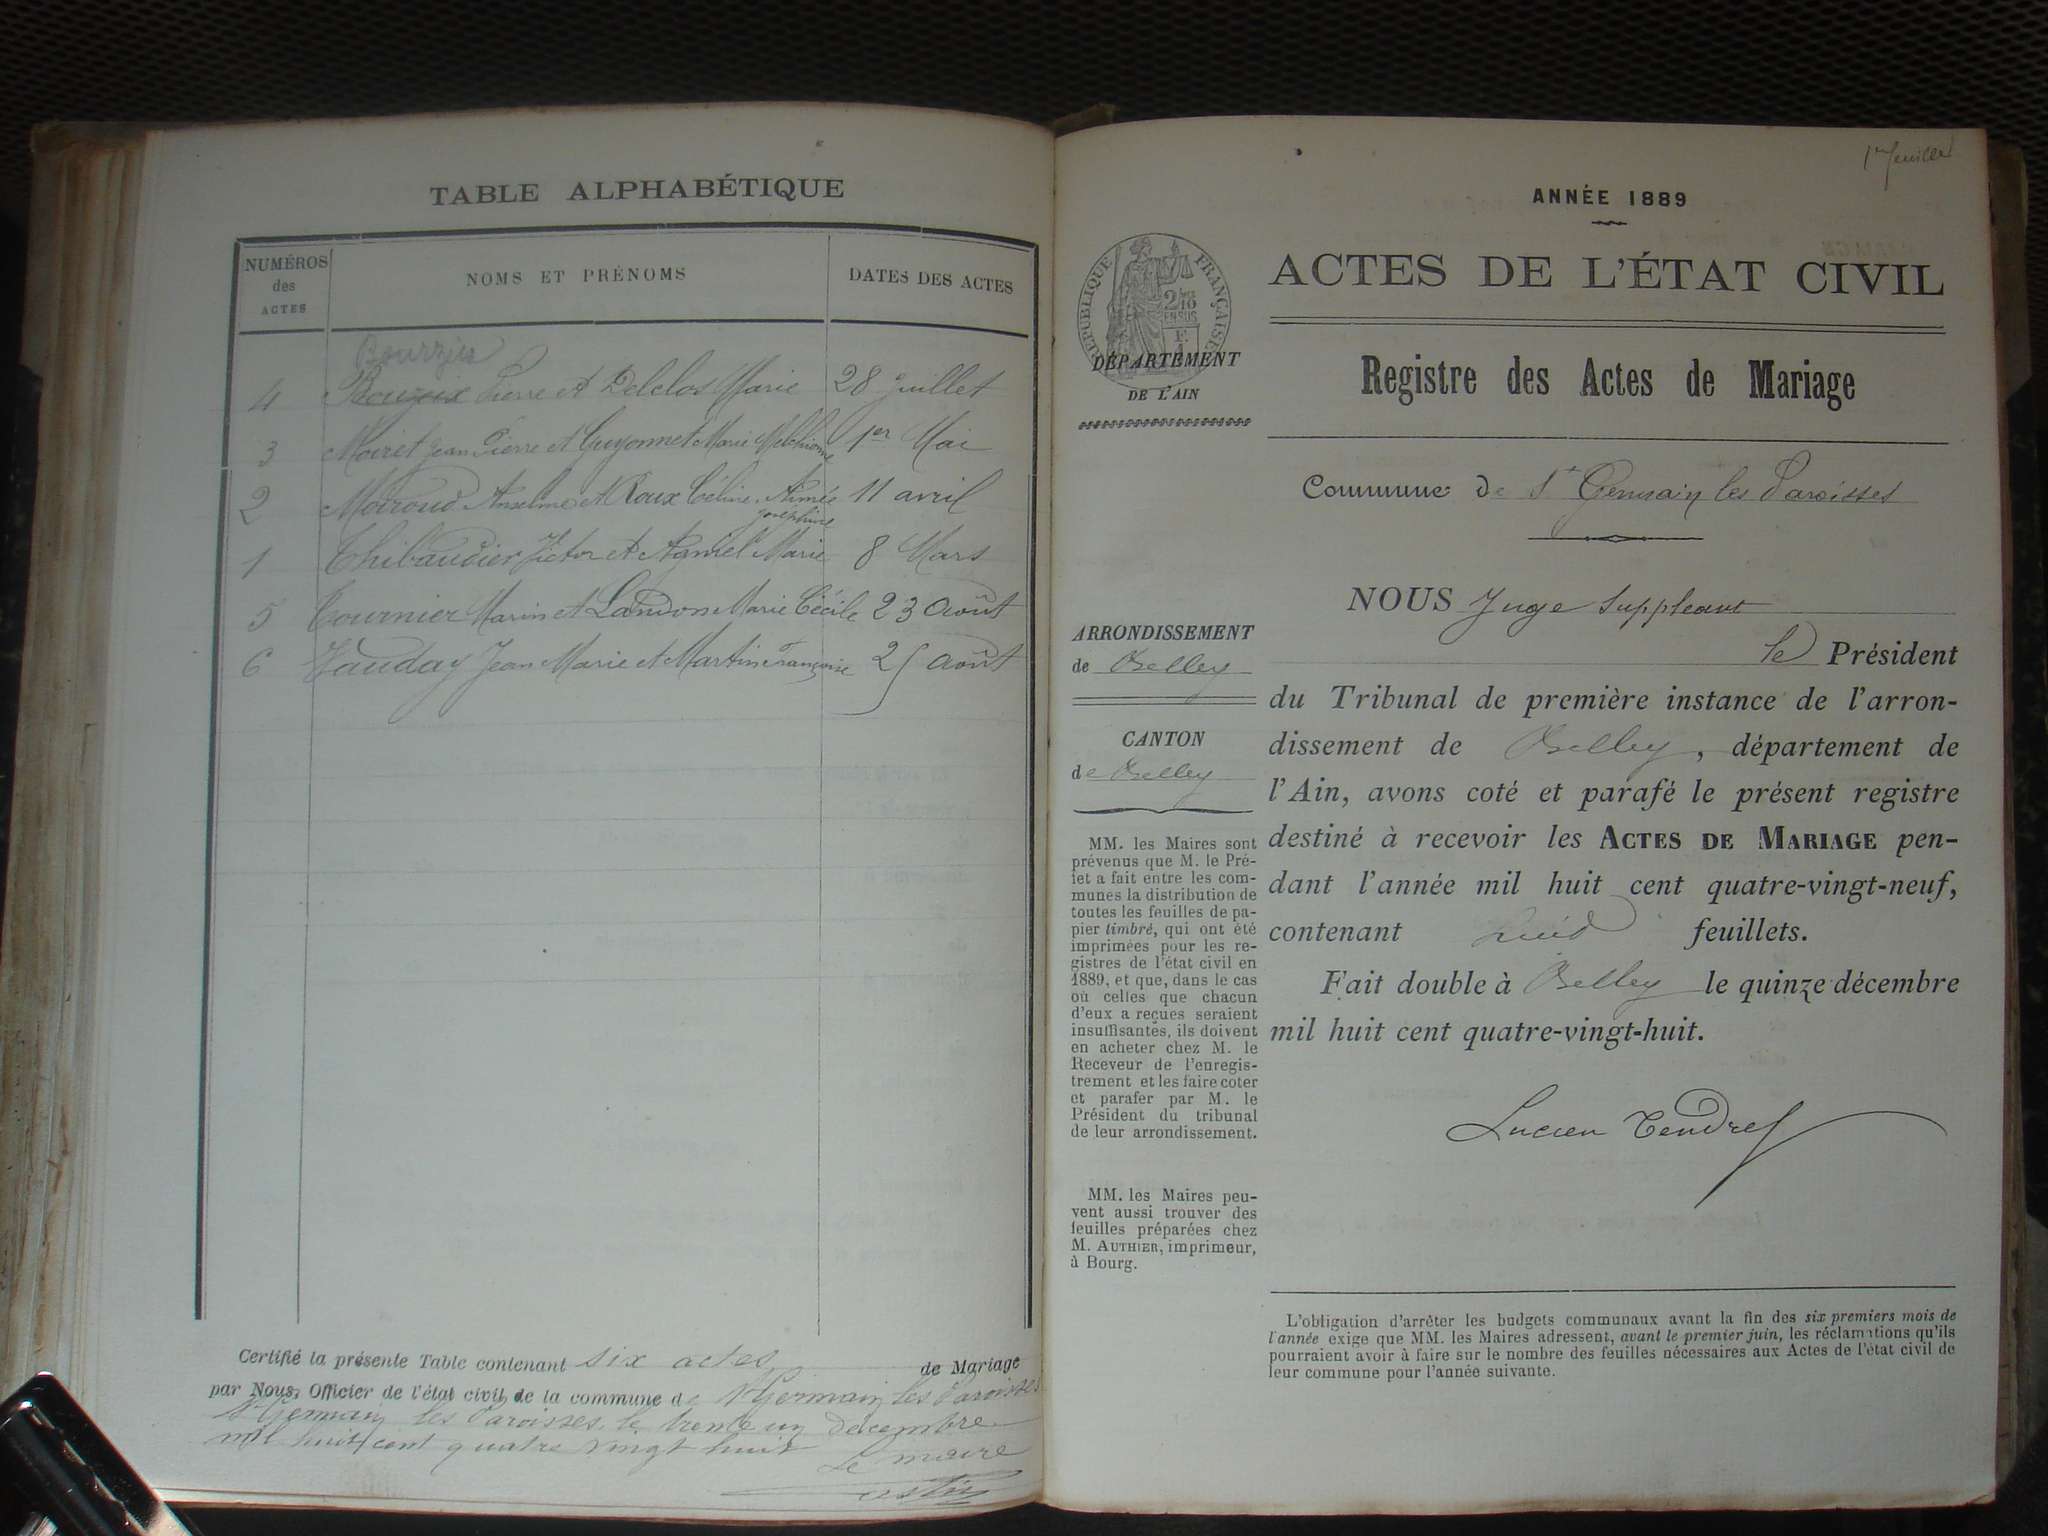 TABLE ALPHABÉTIQUE
NUMÉROS des ACTES
NOMS ET PRÉNOMS
DATES DES ACTES
4 Pierre et Delclos Marie 28 juillet
3 Moiret Jean Pierre et Guyonnet Marie Melchionne 1er Mai
2 Moiroud Anselme et Roux Céline Aimée Joséphine 11 avril
1 Thibaudier Victor et Marie 8 Mars
5 Tournier Marin et Landon Marie Cécile 23 Août
6 Vauday Jean Marie et Martin Françoise 25 Août
Certifié la présente Table contenant six actes de Mariage
par Nous, Officier de l'état civil de la commune de St Germain les Paroisses
St Germain les Paroisses, le trente un décembre
mil huit cent quatre vingt huit
Le maire
1er feuillet
ANNÉE 1889
ACTES DE L'ÉTAT CIVIL
RÉPUBLIQUE FRANÇAISE
DÉPARTEMENT
DE L'AIN
Registre des Actes de Mariage
Commune de St Germain les Paroisses
NOUS Juge Suppleant
le Président
du Tribunal de première instance de l'arron-
dissement de Belley, département de
l'Ain, avons coté et parafé le présent registre
destiné à recevoir les ACTES DE MARIAGE pen-
dant l'année mil huit cent quatre-vingt-neuf,
contenant feuillets.
Fait double à Belley le quinze décembre
mil huit cent quatre-vingt-huit.
Lucien Tendret
ARRONDISSEMENT
de Belley
CANTON
de Belley
MM. les Maires sont
prévenus que M. le Pré-
fet a fait entre les com-
munes la distribution de
toutes les feuilles de pa-
pier timbré, qui ont été
imprimées pour les re-
gistres de l'état civil en
1889, et que, dans le cas
où celles que chacun
d'eux a reçues seraient
insuffisantes, ils doivent
en acheter chez M. le
Receveur de l'enregis-
trement et les faire coter
et parafer par M. le
Président du tribunal
de leur arrondissement.
MM. les Maires peu-
vent aussi trouver des
feuilles préparées chez
M. AUTHIER, imprimeur,
à Bourg.
L'obligation d'arrêter les budgets communaux avant la fin des six premiers mois de
l'année exige que MM. les Maires adressent, avant le premier juin, les réclamations qu'ils
pourraient avoir à faire sur le nombre des feuilles nécessaires aux Actes de l'état civil de
leur commune pour l'année suivante.